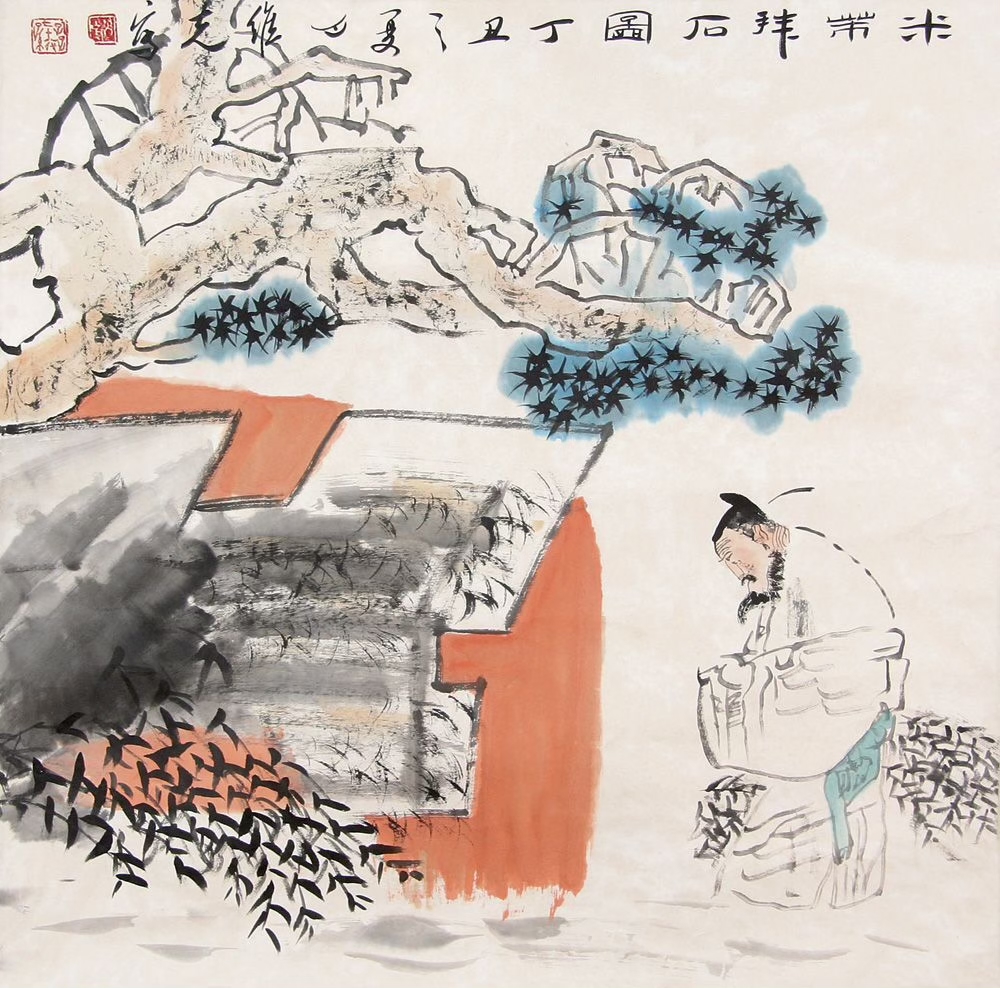 米芾拜石圖丁丑之夏維克寫